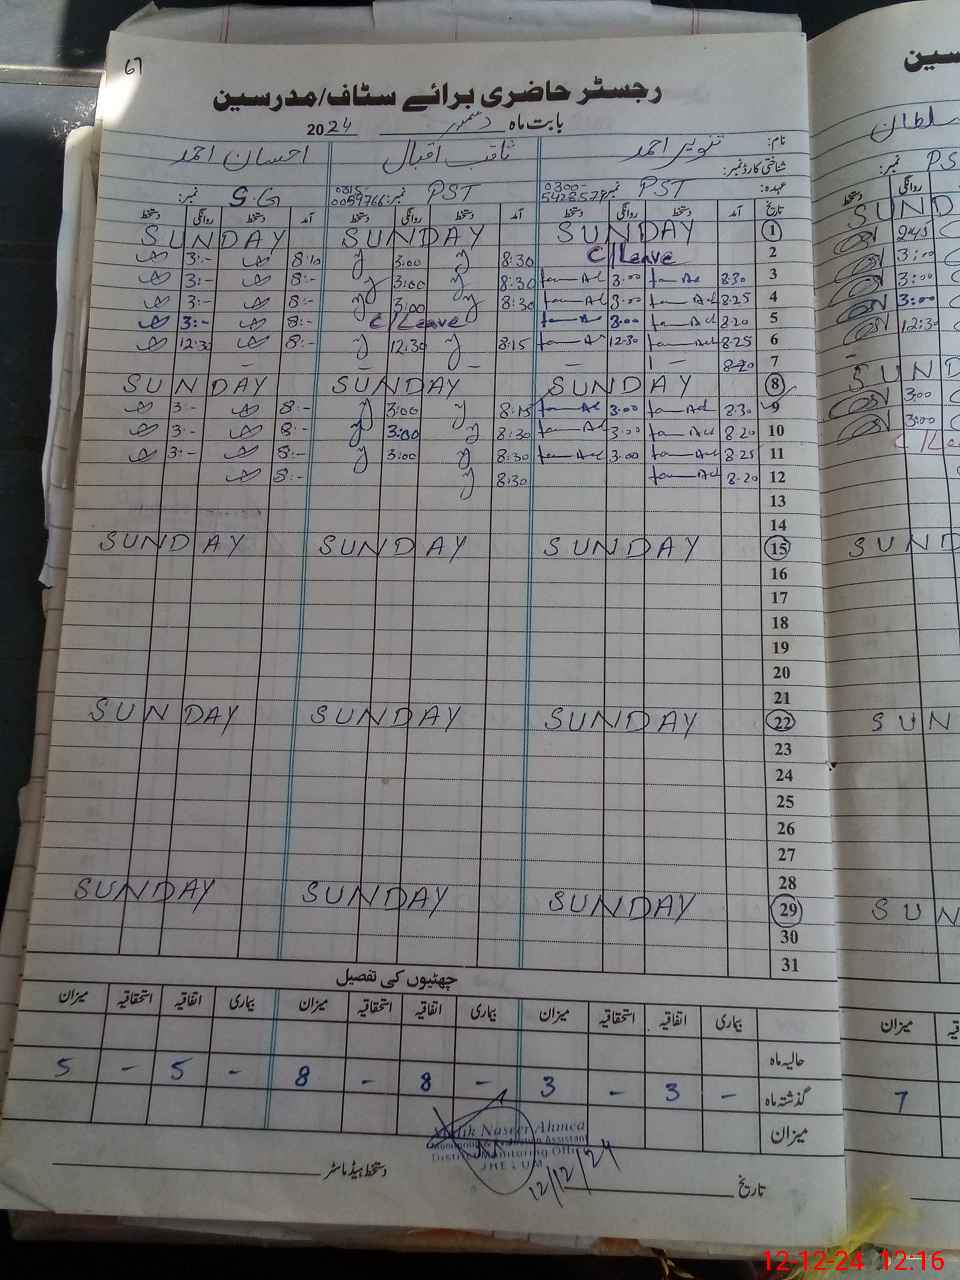 67
رجسٹر حاضری برائے سٹاف/مدرسین
بابت ماہ دسمبر 2024
نام: تنویر احمد ثاقب اقبال احسان احمد
شناختی کارڈ نمبر:
عہدہ: PST نمبر: 0300-5428574 PST نمبر: 0315-0059766 S.G نمبر:
تاریخ آمد دستخط روانگی دستخط آمد دستخط روانگی دستخط آمد دستخط روانگی دستخط
1 SUNDAY SUNDAY SUNDAY
2 C/Leave 8:30 3:00 8:10 3:-
3 8:30 3:00 8:30 3:00 8:- 3:-
4 8:25 3:00 8:30 3:00 8:- 3:-
5 8:20 3:00 C/Leave 8:- 3:-
6 8:25 12:30 8:15 12:30 8:- 12:30
7 8:20 – – – –
8 SUNDAY SUNDAY SUNDAY
9 8:30 3:00 8:15 3:00 8:- 3:-
10 8:20 3:00 8:30 3:00 8:- 3:-
11 8:25 3:00 8:30 3:00 8:- 3:-
12 8:20 8:30 8:-
13
14
15 SUNDAY SUNDAY SUNDAY
16
17
18
19
20
21
22 SUNDAY SUNDAY SUNDAY
23
24
25
26
27
28
29 SUNDAY SUNDAY SUNDAY
30
31
چھٹیوں کی تفصیل
بیماری اتفاقیہ استحقاقیہ میزان بیماری اتفاقیہ استحقاقیہ میزان بیماری اتفاقیہ استحقاقیہ میزان
حالیہ ماہ
گذشتہ ماہ - 3 - 3 - 8 - 8 - 5 - 5
میزان
Malik Naseer Ahmed
Monitoring & Evaluation Assistant
District Monitoring Office
JHELUM
12/12/24
تاریخ
دستخط ہیڈ ماسٹر
سین
سلطان
نمبر: PS
دستخط روانگی
SUND
2:45
3:00
3:00
3:00
12:30
SUND
3:00
3:00
C/Le
SUND
SUN
SUN
میزان
7
12-12-24 12:16